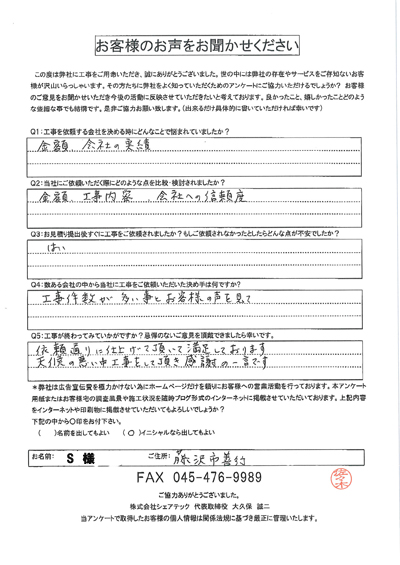 お客様のお声をお聞かせください
この度は弊社に工事をご用命いただき、誠にありがとうございました。世の中には弊社の存在やサービスをご存知ないお客
様が沢山いらっしゃいます。その方たちに弊社をよく知っていただくためのアンケートにご協力いただけるでしょうか？ お客様
のご意見をお聞かせいただき今後の活動に反映させていただきたいと考えております。良かったこと、嬉しかったことどのよう
な些細な事でも結構です。是非ご協力お願い致します。（出来るだけ具体的に書いていただければ幸いです）
Q1：工事を依頼する会社を決める時にどんなことで悩まれていましたか？
金額、会社の実績
Q2：当社にご依頼いただく際にどのような点を比較・検討されましたか？
金額、工事内容、会社への信頼度
Q3：お見積り提出後すぐに工事をご依頼されましたか？もしご依頼されなかったとしたらどんな点が不安でしたか？
はい
Q4：数ある会社の中から当社に工事をご依頼いただいた決め手は何ですか？
工事件数が多い事とお客様の声を見て
Q5：工事が終わってみていかがですか？忌憚のないご意見を頂戴できましたら幸いです。
依頼通りに仕上げて頂いて満足しております
天候の悪い中工事をして頂き感謝の一言です
＊弊社は広告宣伝費を極力かけない為にホームページだけを頼りにお客様への営業活動を行っております。本アンケート
用紙またはお客様宅の調査風景や施工状況を随時ブログ形式のインターネットに掲載させていただいております。上記内容
をインターネットや印刷物に掲載させていただいてもよろしいでしょうか？
下記の中から○印をお付下さい。
（ ）名前を出してもよい （○）イニシャルなら出してもよい
お名前： S 様 ご住所： 藤沢市善行
FAX 045-476-9989
佐々木
ご協力ありがとうございました。
株式会社シェアテック 代表取締役 大久保 誠二
当アンケートで取得したお客様の個人情報は関係法規に基づき厳正に管理いたします。